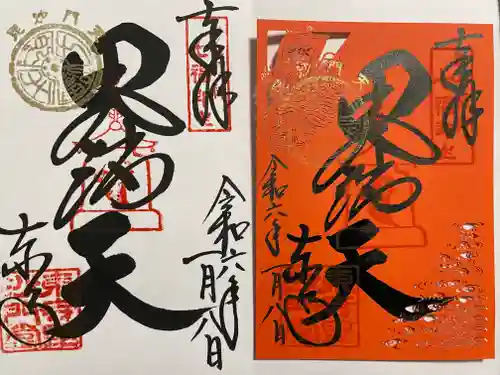 奉拝
毘沙門天
令和六年
一月八日
東寺
奉拝
毘沙門天
東寺
令和六年一月八日